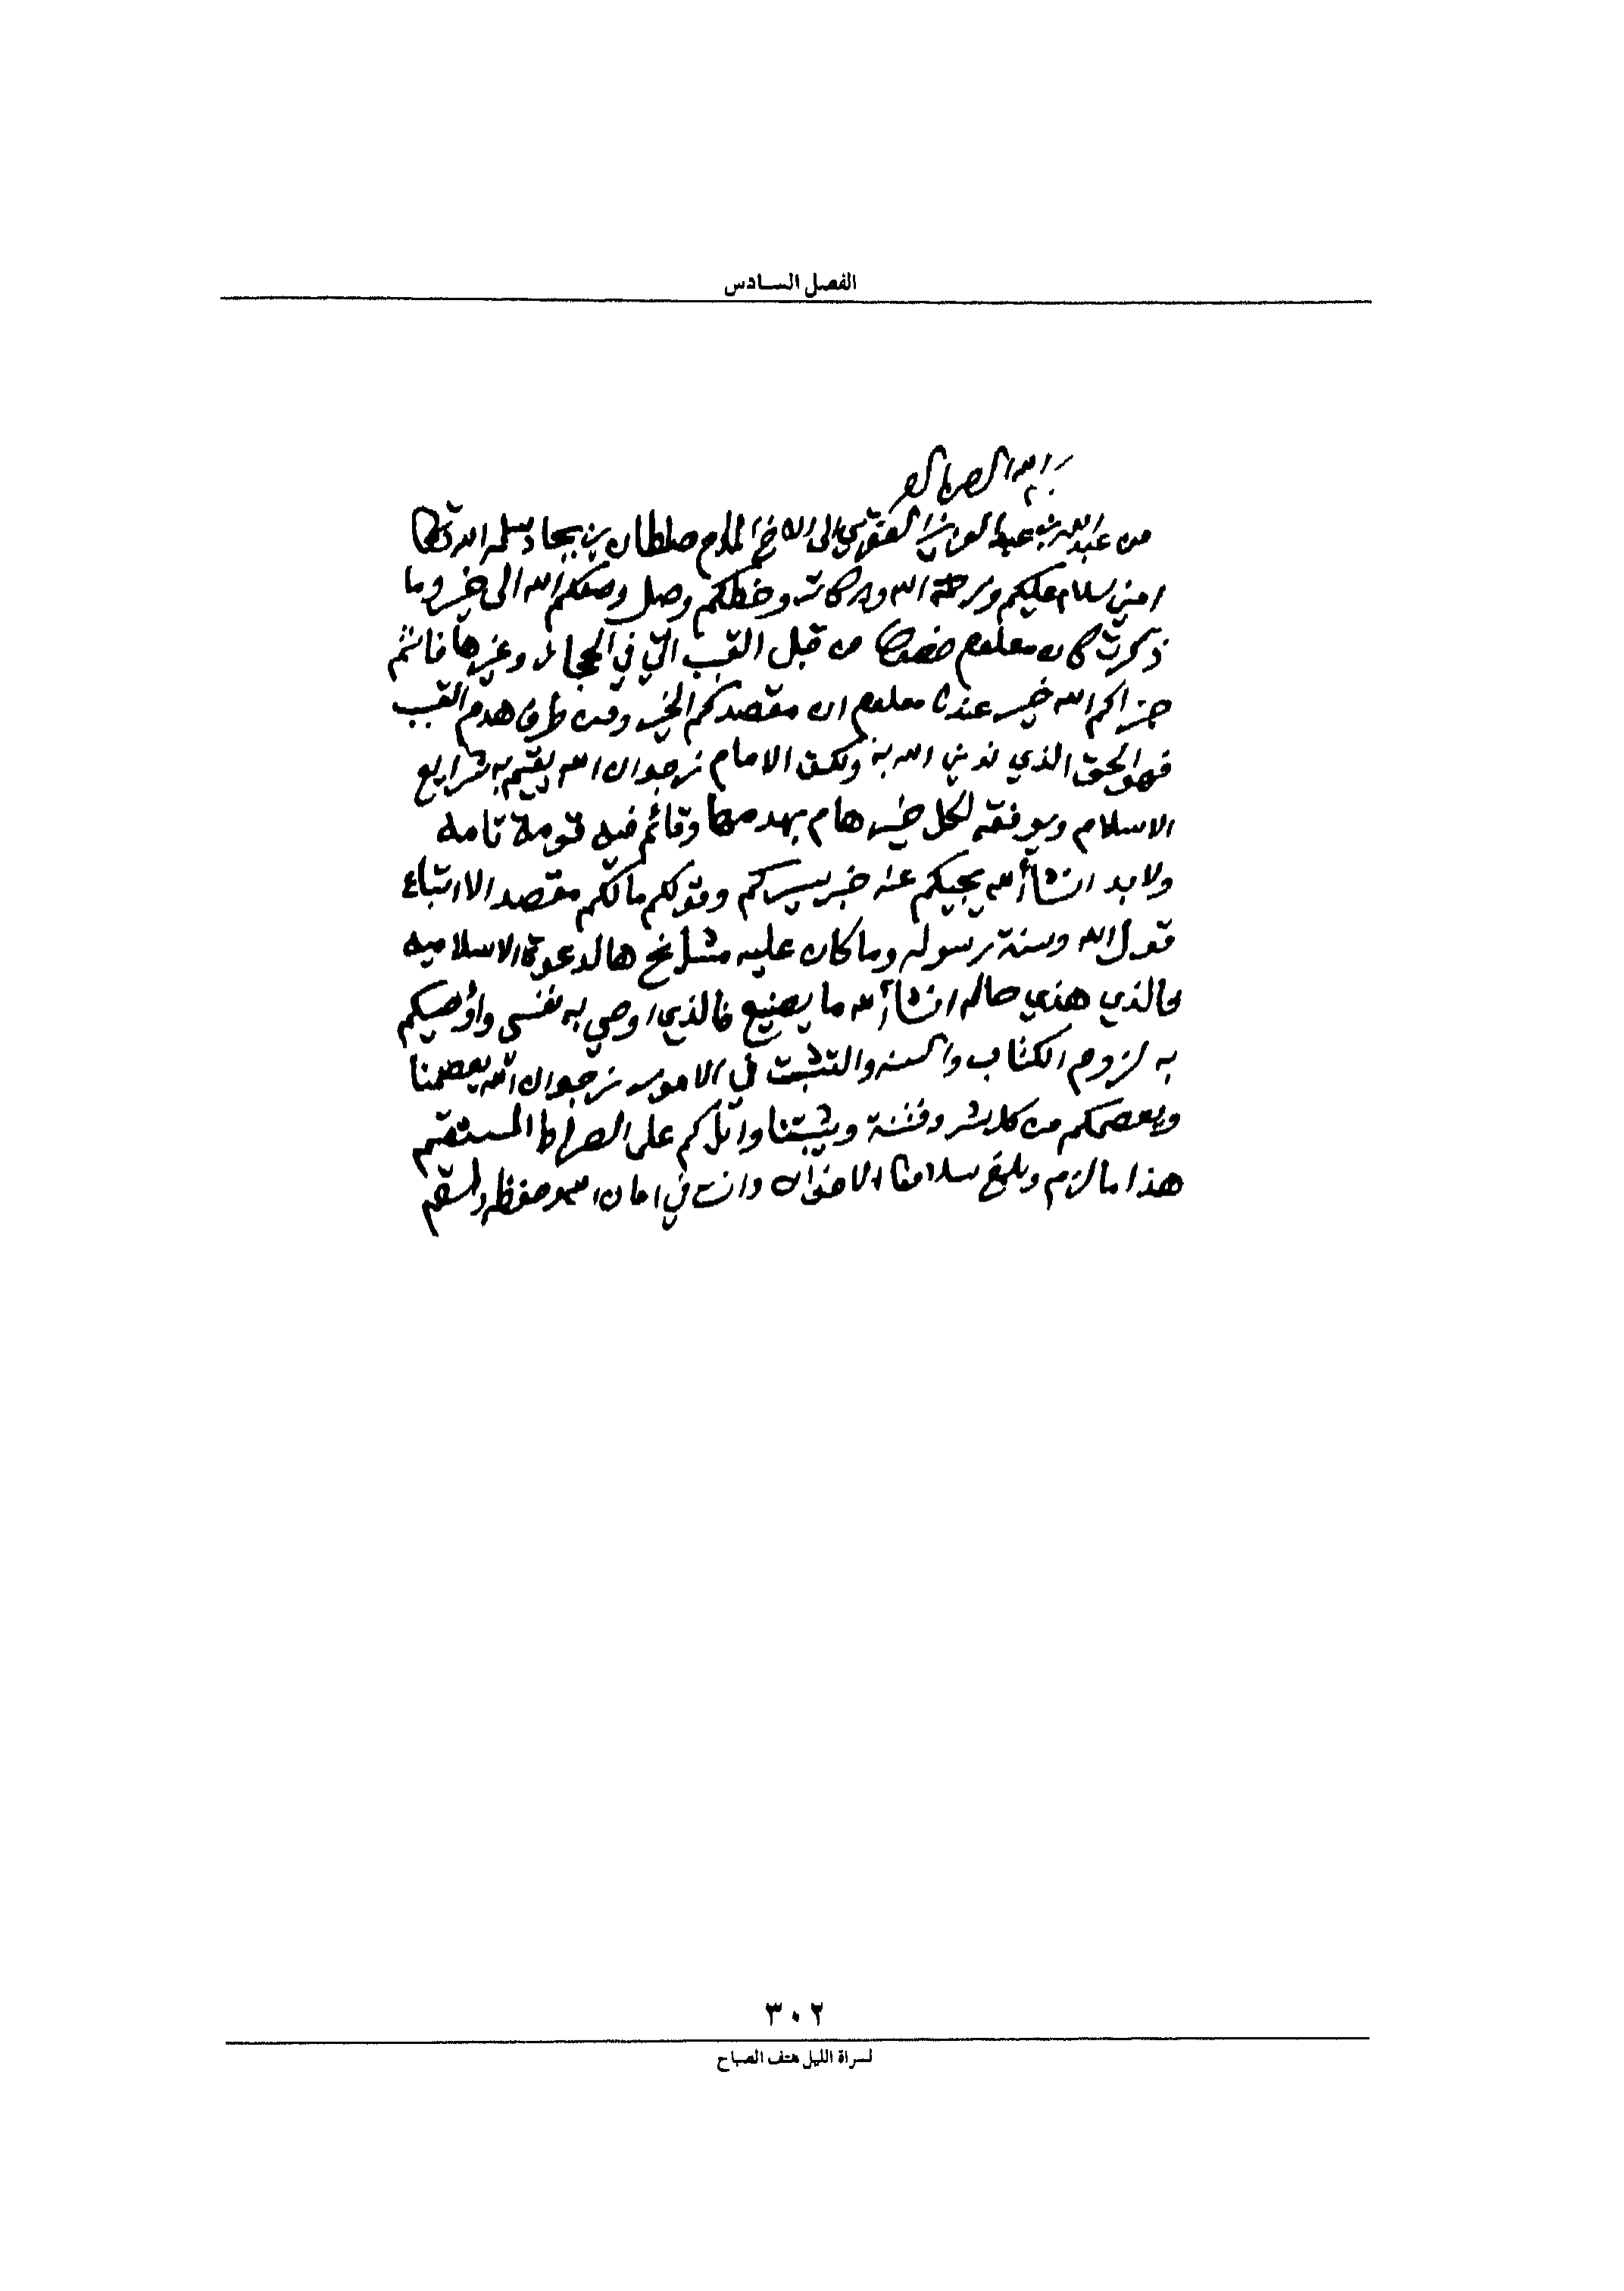 الفصل السادس
بسم الله الرحمن الرحيم
من عبدالله بن عبدالعزيز العنقري الى الاخ المكرم صلطان بن بجاد سلمه الله تعالى
امين سلام عليكم ورحمة الله وبركاته وخطكم وصل وصلكم الله الى خير وما
ذكرت كان معلوم خصوصا من قبل القبب التي في الحجاز وغيرها فانتم
جزاكم الله خير عندنا معلوم ان مقصدكم الخير ومن طرف هدم القبب
فهو الحق الذي ندين الله به ولكن الامام نرجوا ان الله يقيم به شرايع
الاسلام ويوفقه لكل خير هام بهدمها وقائم فيه قومة تامه
ولا بد انشاء الله يجيكم عنه خبر يسركم وقولكم مالكم مقصد الا اتباع
قول الله وسنة رسوله وما كان عليه مشايخ هالدعوة الاسلاميه
فالذي هذي حاله انشاء الله ما يضيع فالذي اوصي به نفسي واوصيكم
به لزوم الكتاب والسنه والتثبت في الامور نرجوا ان الله يعصمنا
ويعصمكم من كل شر وفتنة ويثبتنا واياكم على الصراط المستقيم
هذا مالزم وبلغ سلامنا الاخوان وانت في امان الله وحفظه والسلام
٣٠٢
لسراة الليل هتف الصباح